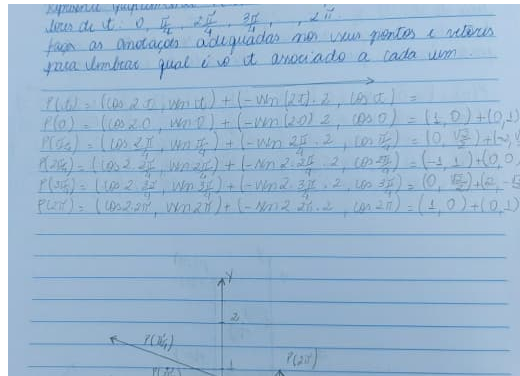 lores de t: 0, π/4, 2π/4, 3π/4, , 2π.
faça as anotações adequadas nos seus pontos e vetores
para lembrar qual é o t associado a cada um.
P(t) = (cos 2.t, sen t) + (-sen(2t).2, cos t) =
P(0) = (cos 2.0, sen 0) + (-sen(2.0).2, cos 0) = (1, 0) + (0, 1)
P(π/4) = (cos 2π/4, sen π/4) + (-sen 2π/4 . 2, cos π/4) = (0, √2/2) + (-2, √
P(2π/4) = (cos 2.2π/4, sen 2π/4) + (-sen 2.2π/4 . 2, cos 2π/4) = (-1, 1) + (0, 0
P(3π/4) = (cos 2.3π/4, sen 3π/4) + (-sen 2.3π/4 . 2, cos 3π/4) = (0, √2/2) + (2, -√2
P(2π) = (cos 2.2π, sen 2π) + (-sen 2.2π.2, cos 2π) = (1, 0) + (0, 1)
Y
2
P(π/4)
P(2π)
1